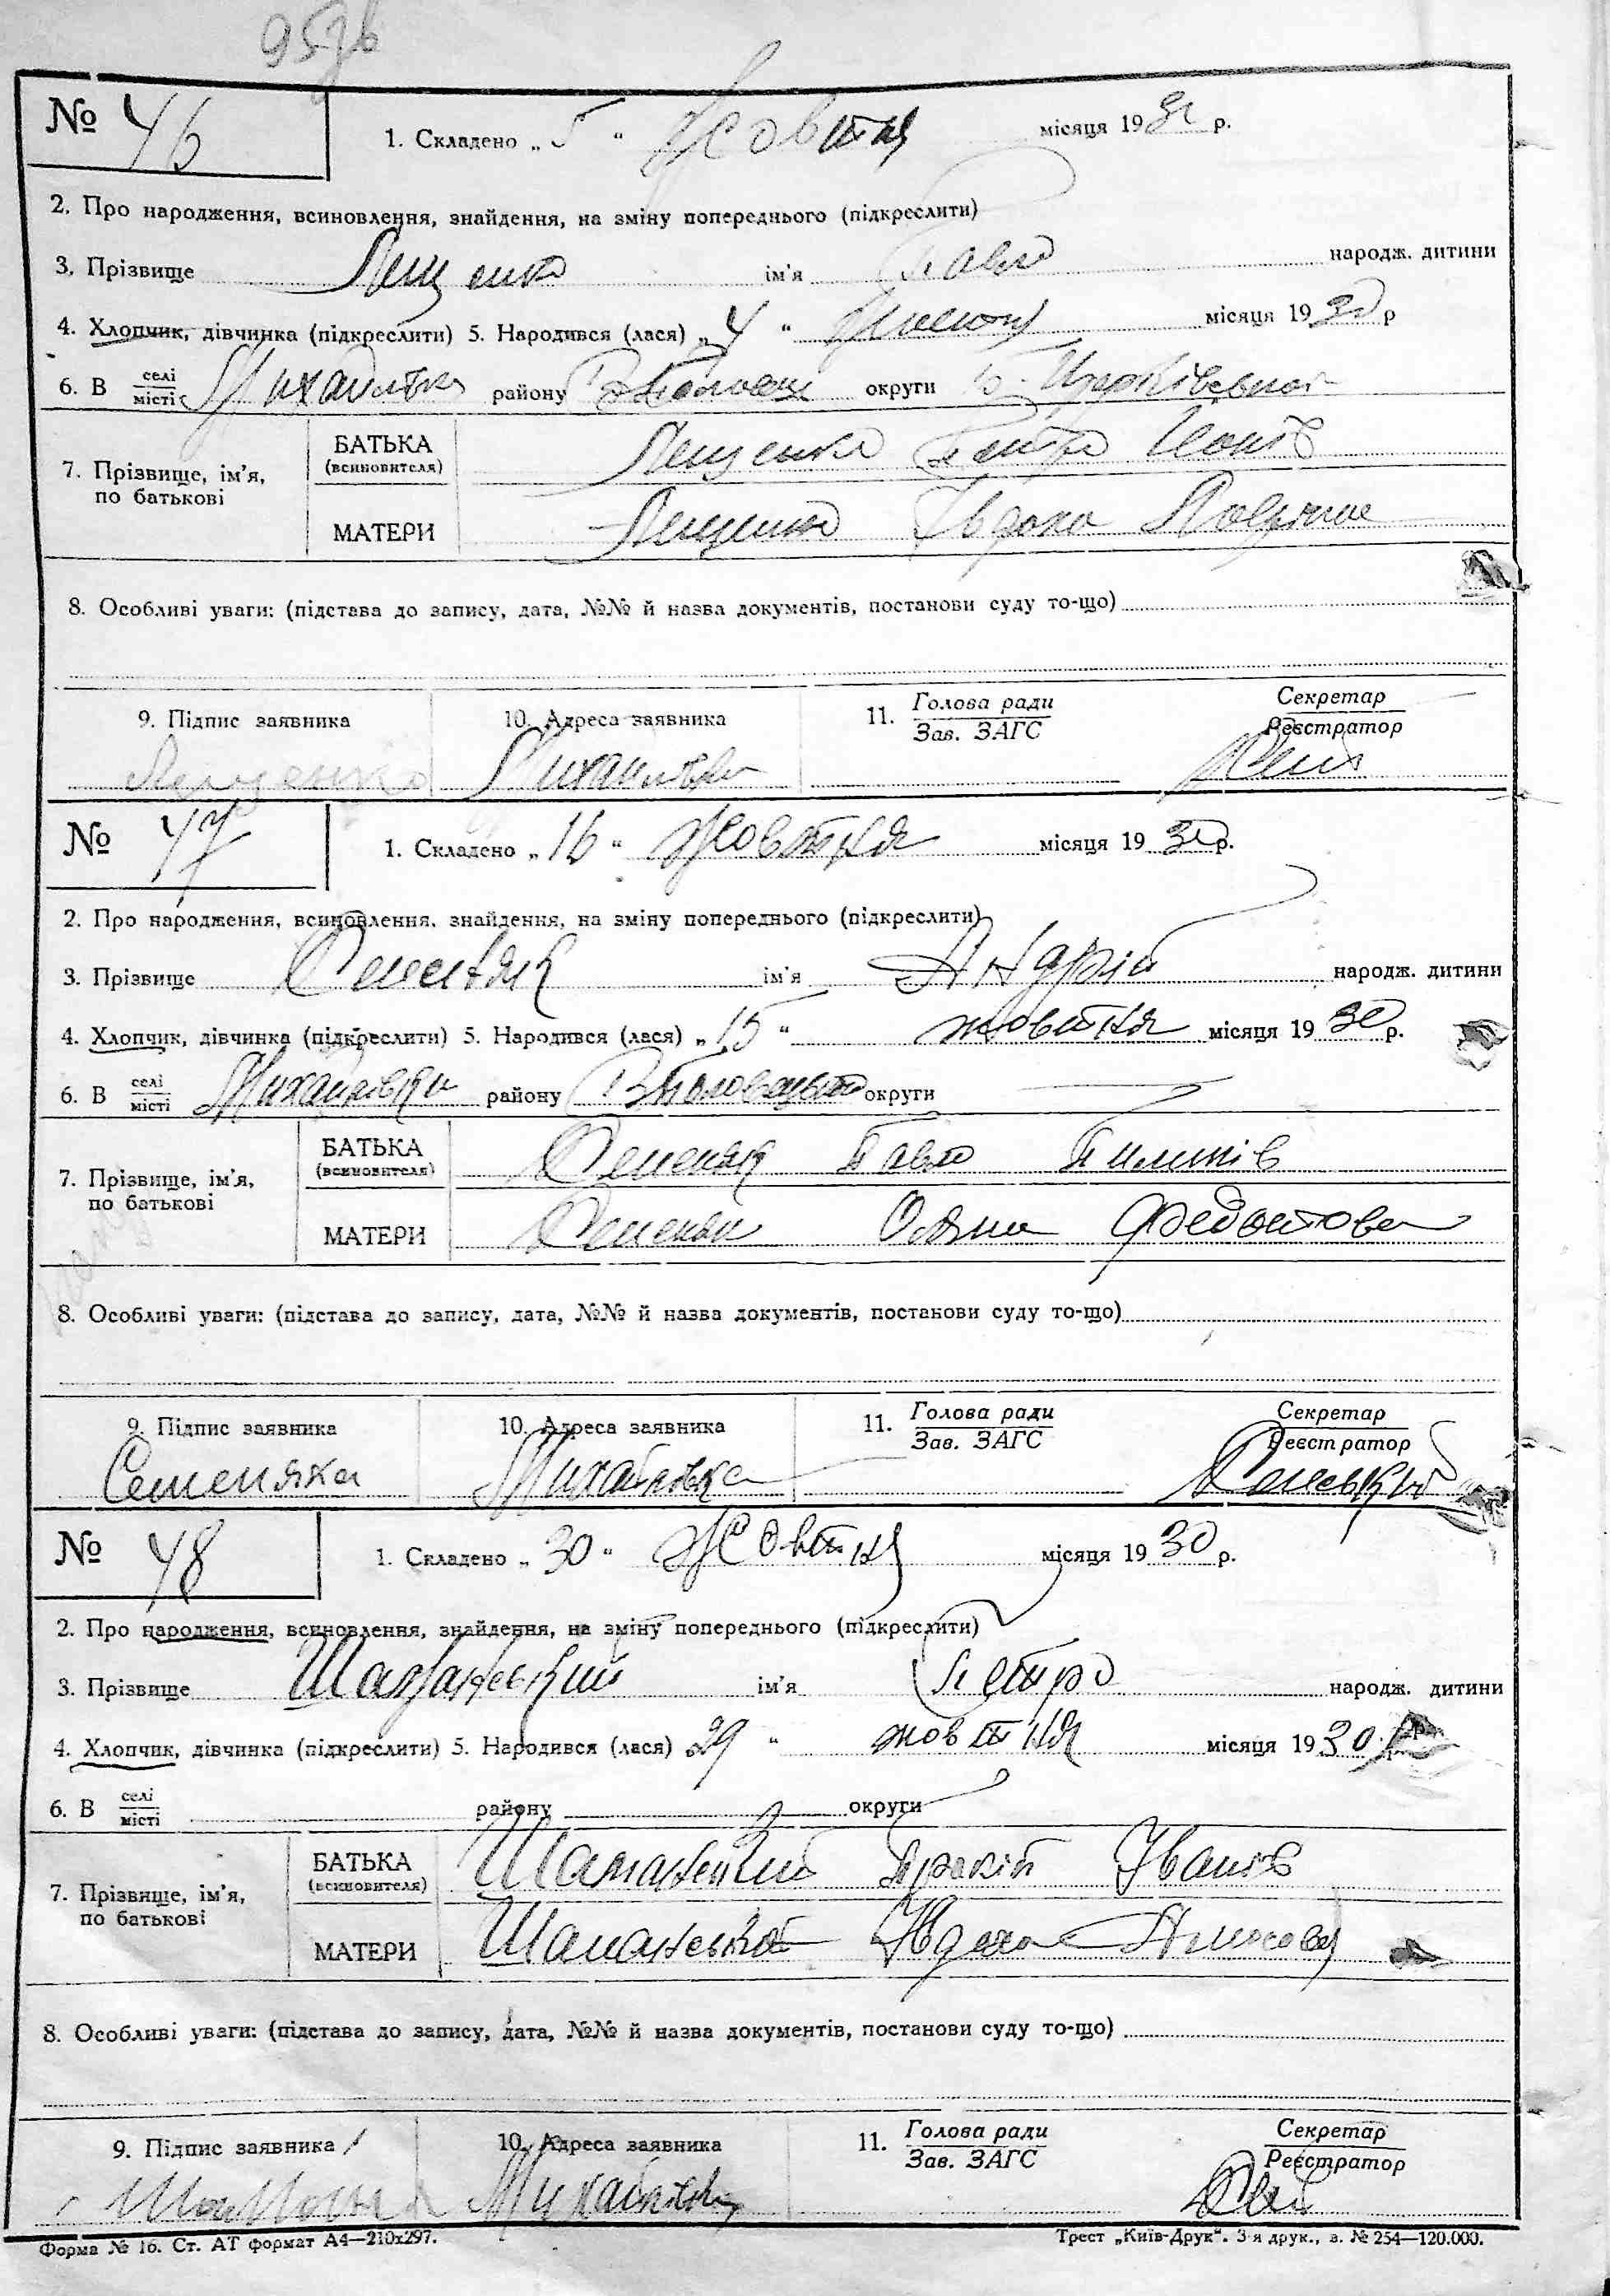 № 46
1. Складено „ 5 “ Жовтня місяця 1930 р.
2. Про народження, всиновлення, знайдення, на зміну попереднього (підкреслити)
3. Прізвище Лещенко ім'я Павло народж. дитини
4. Хлопчик, дівчинка (підкреслити) 5. Народився (лася) „ 4 “ місяця 1930 р
6. В селі/місті Михайлівка району округи Б. Церківської
7. Прізвище, ім'я, по батькові
БАТЬКА (всиновителя) Лещенко Петро
МАТЕРИ Лещенко Івдоха
8. Особливі уваги: (підстава до запису, дата, №№ й назва документів, постанови суду то-що)
9. Підпис заявника 10. Адреса заявника 11. Голова ради Секретар
Зав. ЗАГС Реєстратор
Лещенко Михайлівка
№ 47
1. Складено „ 16 “ Жовтня місяця 1930 р.
2. Про народження, всиновлення, знайдення, на зміну попереднього (підкреслити)
3. Прізвище Семеняк ім'я Андрій народж. дитини
4. Хлопчик, дівчинка (підкреслити) 5. Народився (лася) „ 15 “ жовтня місяця 1930 р.
6. В селі/місті Михайлівки району Володарського округи
7. Прізвище, ім'я, по батькові
БАТЬКА (всиновителя) Семеняк Павло Пилипів
МАТЕРИ Семеняк Федонтова
8. Особливі уваги: (підстава до запису, дата, №№ й назва документів, постанови суду то-що)
9. Підпис заявника 10. Адреса заявника 11. Голова ради Секретар
Зав. ЗАГС Реєстратор
Семеняка Михайлівка
№ 48
1. Складено „ 30 “ Жовтня місяця 1930 р.
2. Про народження, всиновлення, знайдення, на зміну попереднього (підкреслити)
3. Прізвище Шаманський ім'я Петро народж. дитини
4. Хлопчик, дівчинка (підкреслити) 5. Народився (лася) „ 29 “ жовтня місяця 1930 р.
6. В селі/місті району округи
7. Прізвище, ім'я, по батькові
БАТЬКА (всиновителя) Шаманський Іванів
МАТЕРИ Шаманська Явдоха
8. Особливі уваги: (підстава до запису, дата, №№ й назва документів, постанови суду то-що)
9. Підпис заявника 10. Адреса заявника 11. Голова ради Секретар
Зав. ЗАГС Реєстратор
Михайлівка
Форма № 16. Ст. АТ формат А4—210х297. Трест „Київ-Друк“. 3-я друк., з. № 254—120.000.